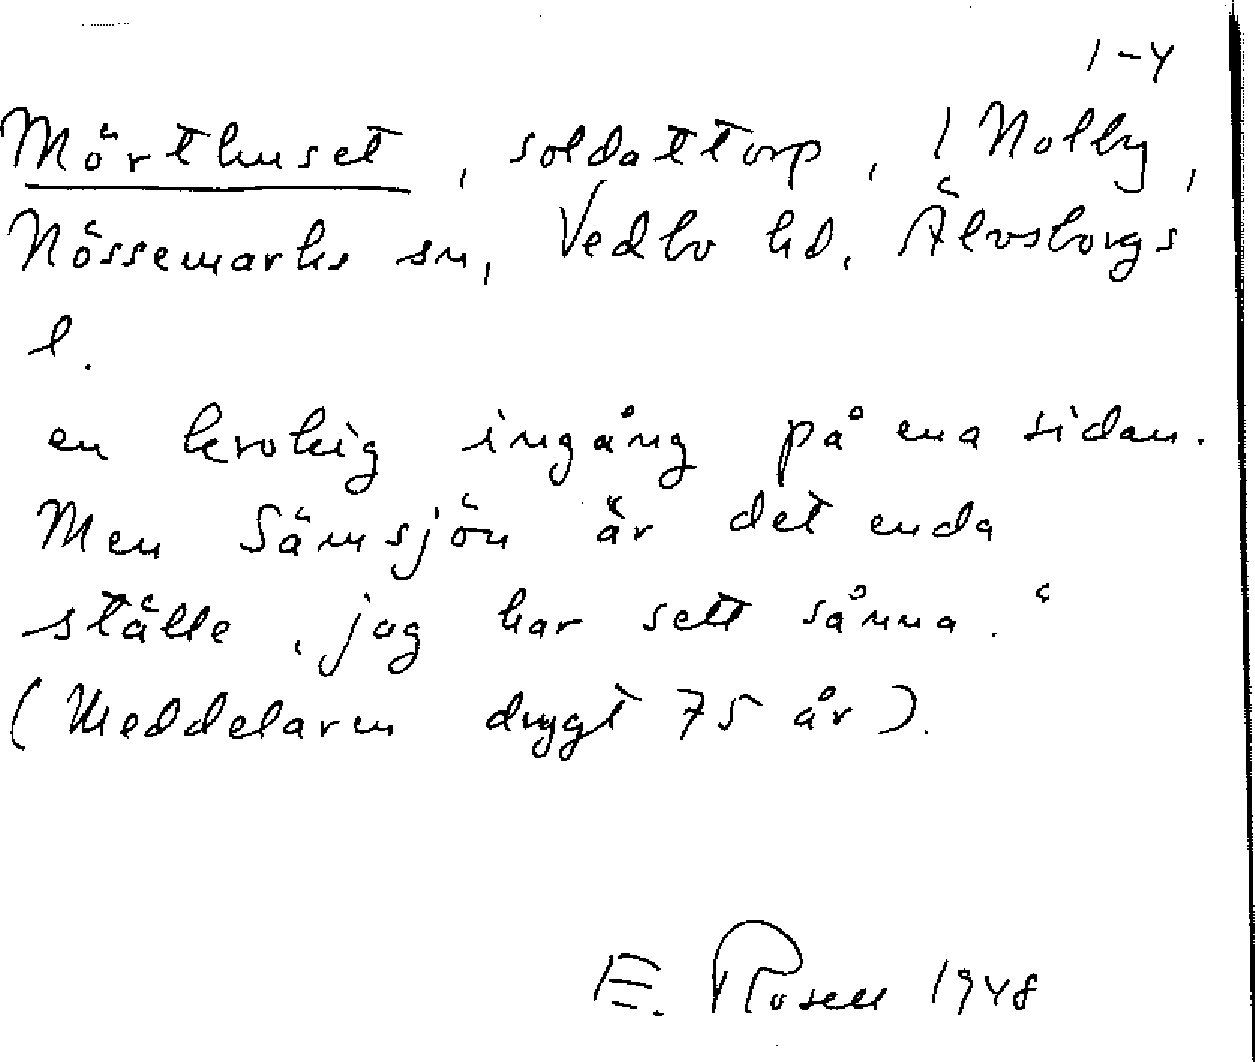 1-4
Mörthuset, soldattorp, / Nolby,
Nössemarks sn, Vedbo hd, Älvsborgs
l.
en krokig ingång på ena sidan.
Men Sämsjön är det enda
ställe, jag har sett sånna."
(Meddelaren drygt 75 år).
E. Rosell 1948